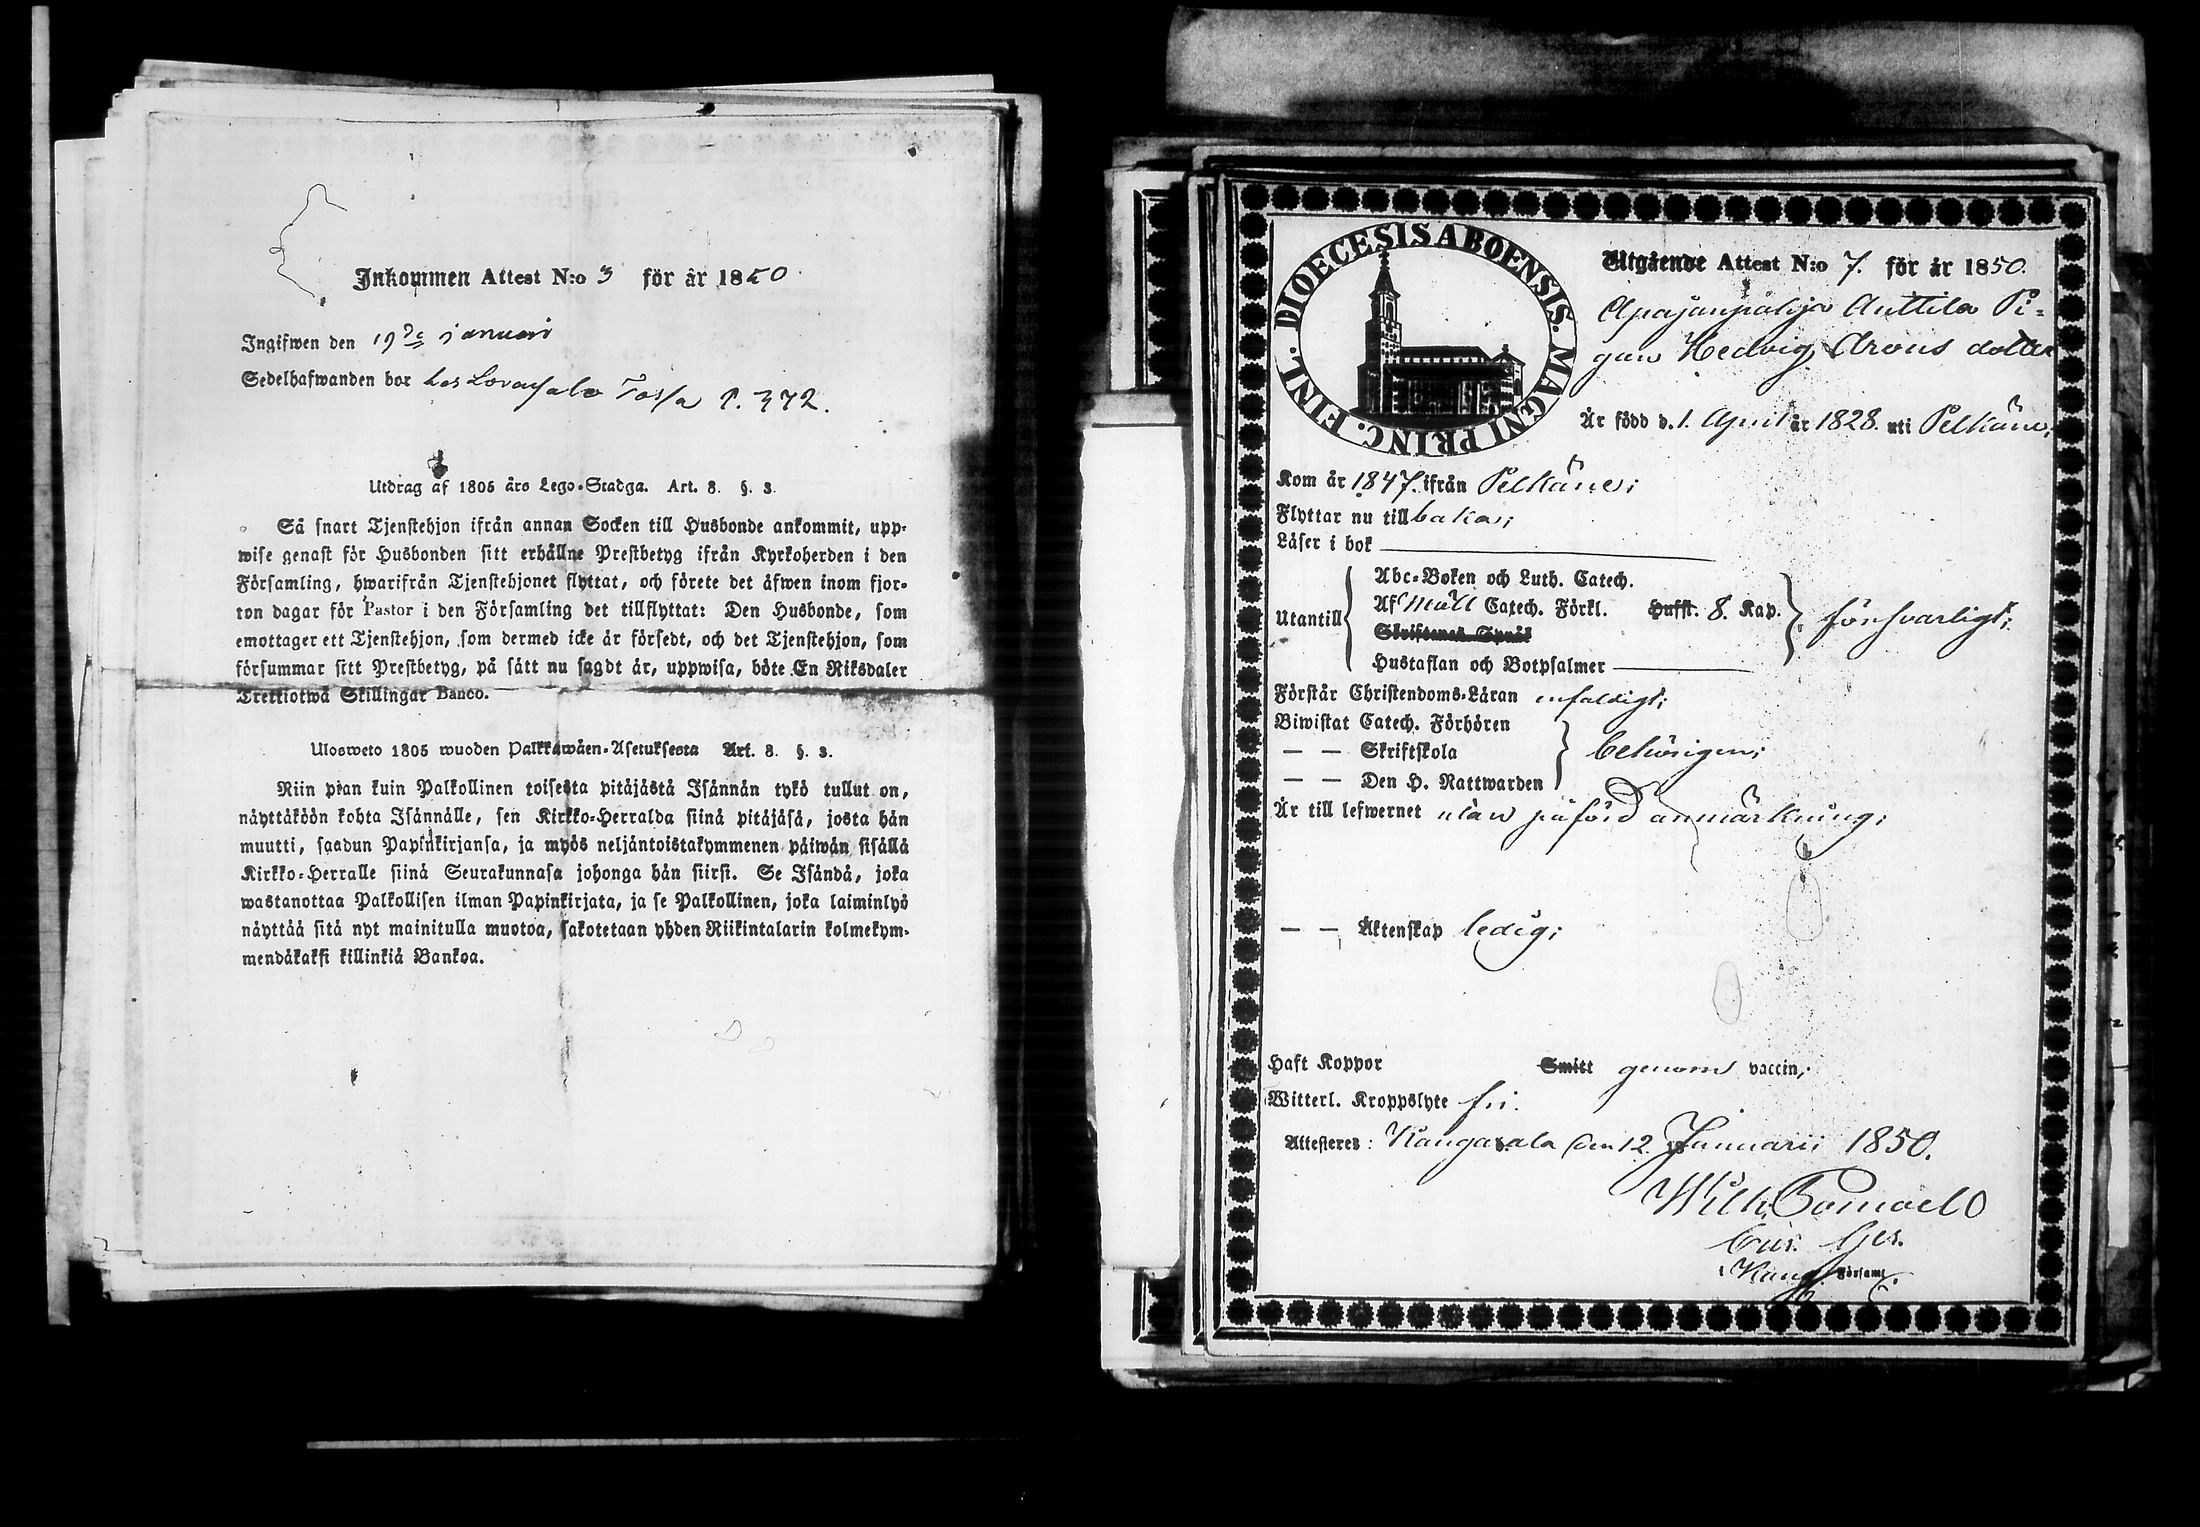 Inkommen Attest N:o 3 för år 1850.
Ingifwen den 19de januari
Sedelhafwanden bor hos p. 372.
Utdrag af 1805 års Lego-Stadga. Art. 8. §. 3.
Så snart Tjenstehjon ifrån annan Socken till Husbonde ankommit, upp-
wise genast för Husbonden sitt erhållne Prestbetyg ifrån Kyrkoherden i den
Församling, hwarifrån Tjenstehjonet flyttat, och förete det äfwen inom fjor-
ton dagar för Pastor i den Församling det tillflyttat: Den Husbonde, som
emottager ett Tjenstehjon, som dermed icke är försedt, och det Tjenstehjon, som
försummar sitt Prestbetyg, på sätt nu sagdt är, uppwisa, böte En Riksdaler
Trettiotwå Skillingar Banco.
Ulosweto 1805 wuoden Palkkawäen-Asetuksesta Art. 8. §. 3.
Niin pian kuin Palkollinen toisesta pitäjästä Isännän tykö tullut on,
näyttäköön kohta Isännälle, sen Kirkko-Herralda siinä pitäjäsä, josta hän
muutti, saadun Papinkirjansa, ja myös neljäntoistakymmenen päiwän sisällä
Kirkko-Herralle siinä Seurakunnasa johonga hän siirsi. Se Isändä, joka
wastanottaa Palkollisen ilman Papinkirjata, ja se Palkollinen, joka laiminlyö
näyttää sitä nyt mainitulla muotoa, sakotetaan yhden Riikintalarin kolmekym-
mendäkaksi killinkiä Bankoa.
DIOECESIS ABOENSIS. MAGNI PRINC. FINL.
Utgående Attest N:o 7. för år 1850.
Apajanpohja Anttila Pi-
gan Hedvig Arons dotter
Är född d. 1. April år 1828. uti Pelkäne;
Kom år 1847. ifrån Pelkäne;
Flyttar nu tillbaka;
Läser i bok
Utantill
Abc-Boken och Luth. Catech.
Af Catech. Förkl. Hufst. 8. Kap.
Skriftenes Språk
Hustaflan och Botpsalmer
försvarligt;
Förstår Christendoms-Läran enfaldigt;
Biwistat Catech. Förhören
— — Skriftskola
— — Den H. Nattwarden
behörigen;
Är till lefwernet utan påförd anmärkning;
— — Äktenskap ledig;
Haft Koppor Smitt genom vaccin;
Witterl. Kroppslyte fri.
Attesteres: Kangasala den 12. Januarii 1850.
Wilh.
i Kang. Församl.